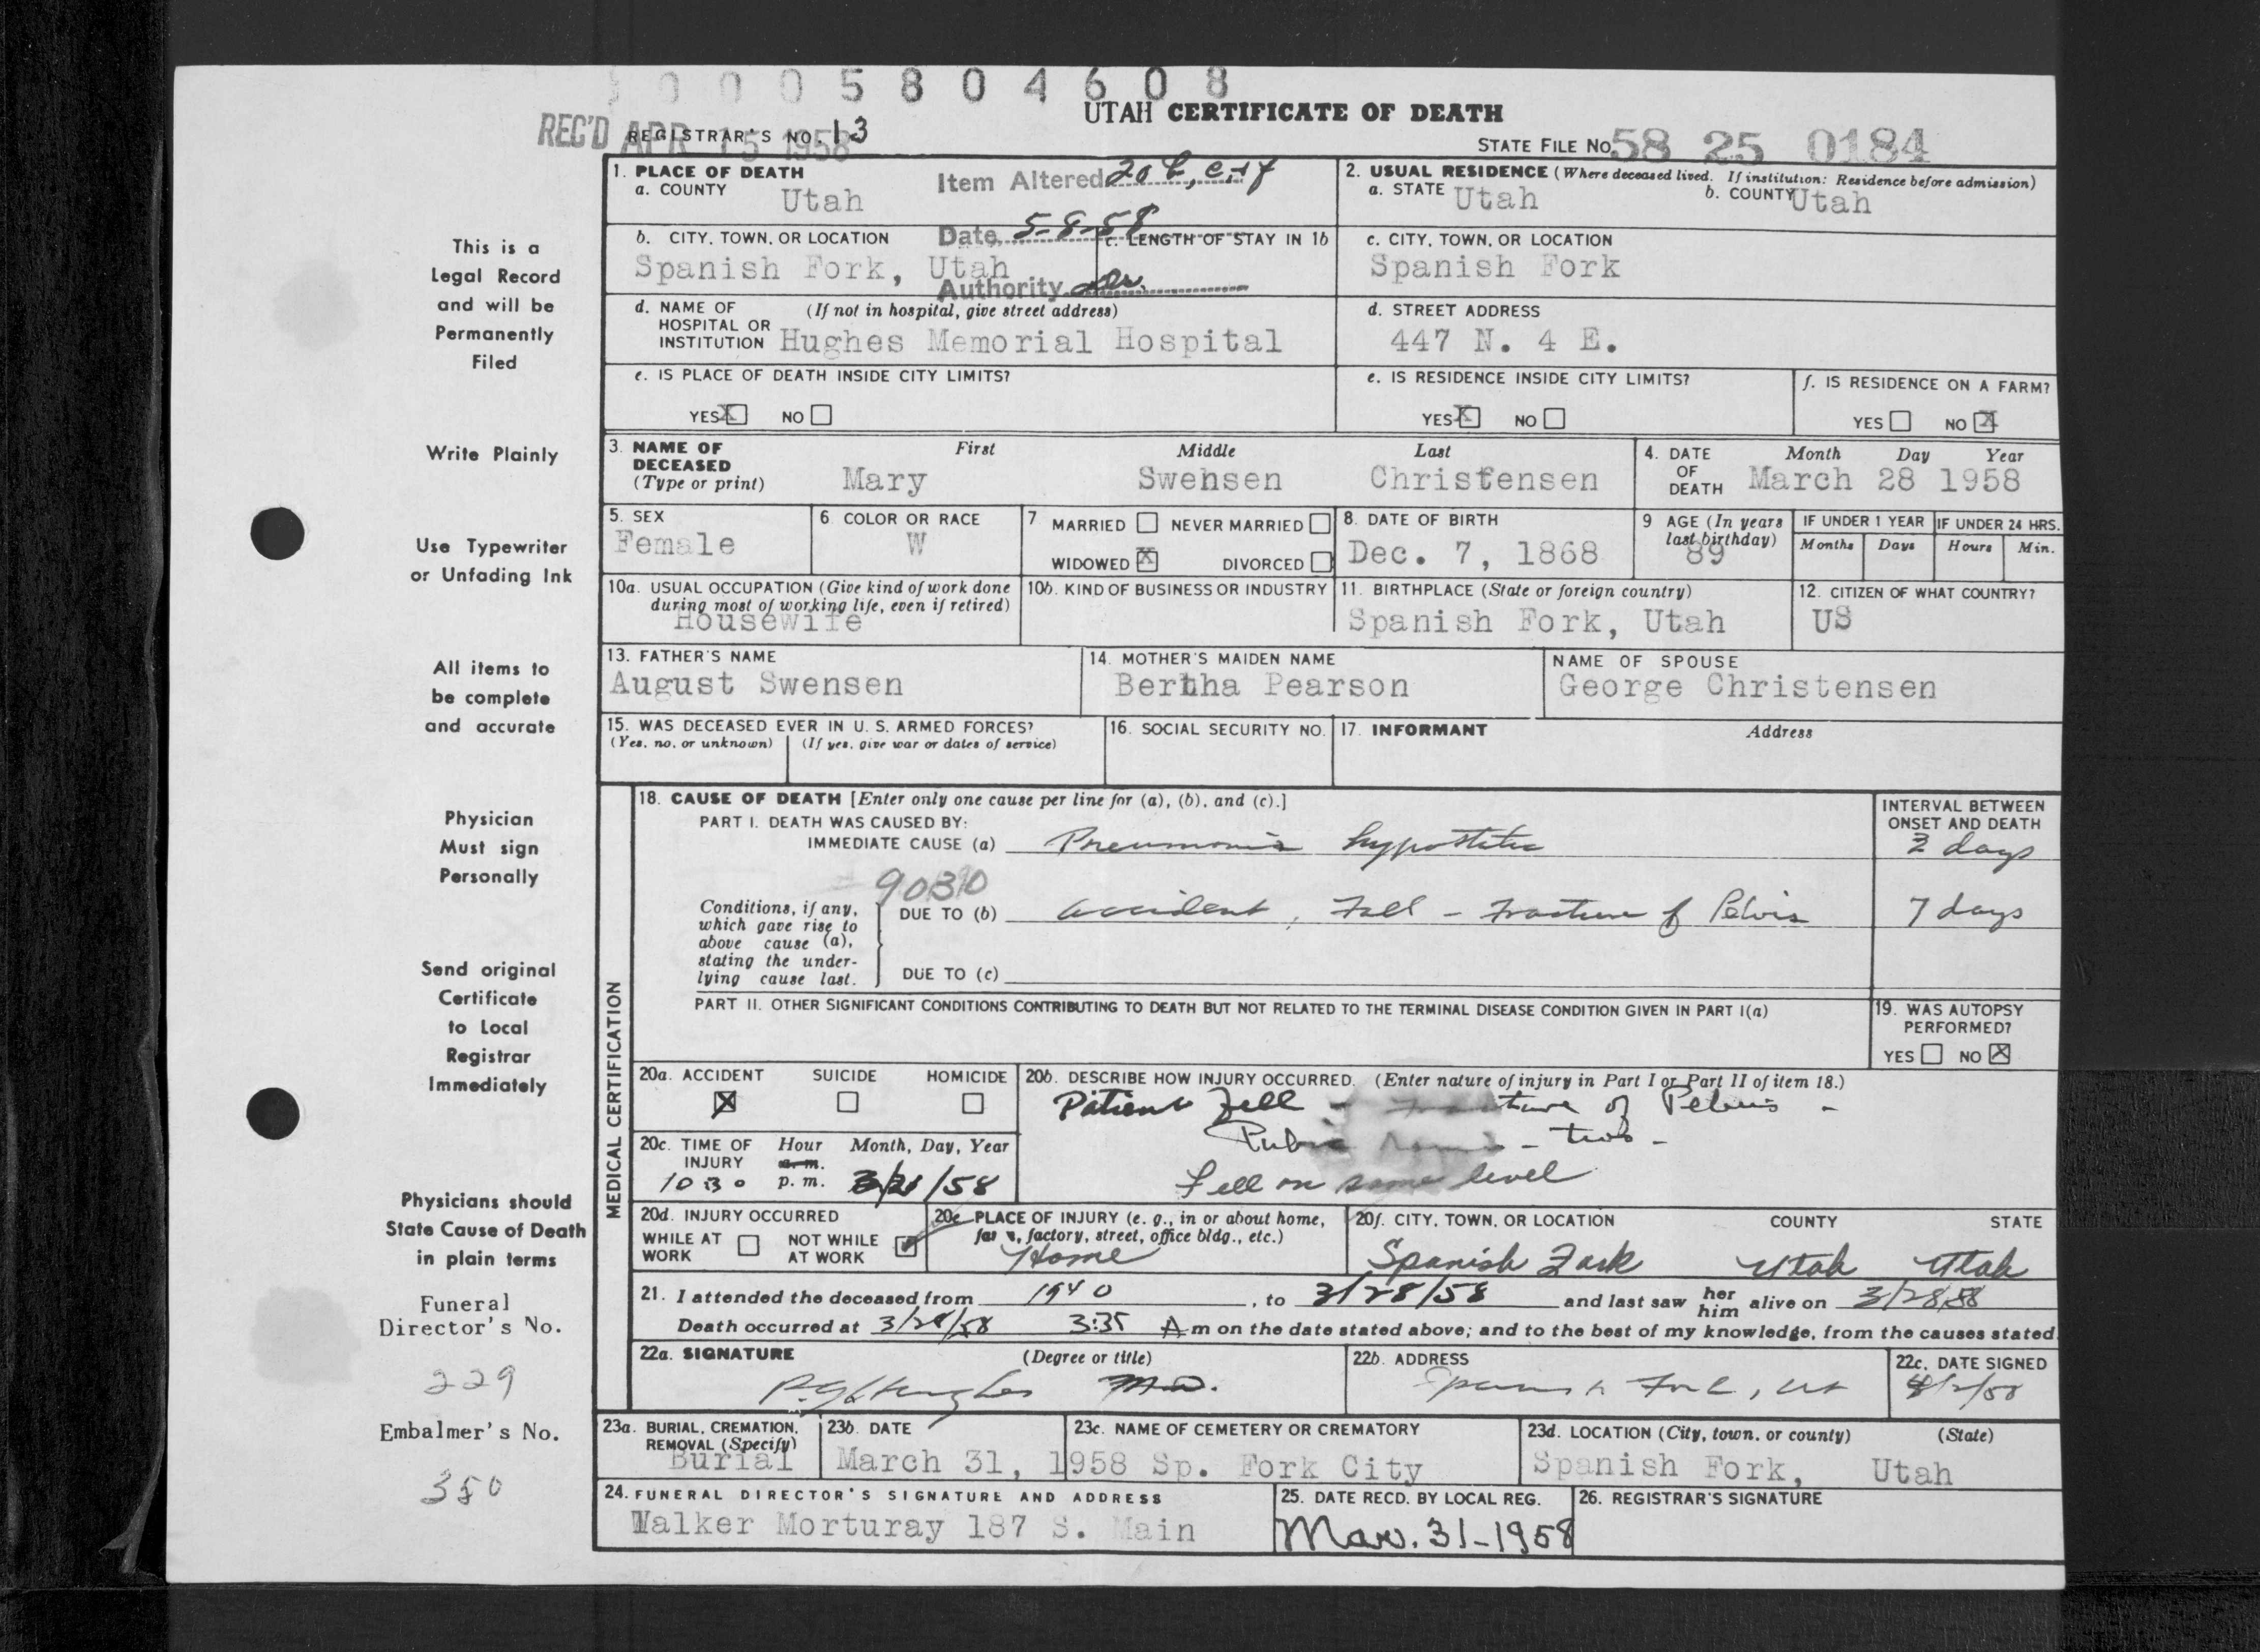 0 0 0 5 8 0 4 6 0 8
UTAH CERTIFICATE OF DEATH
REC'D APR 15 1958
REGISTRAR'S NO. 13
STATE FILE NO. 58 25 0184
This is a
Legal Record
and will be
Permanently
Filed
Write Plainly
Use Typewriter
or Unfading Ink
All items to
be complete
and accurate
Physician
Must sign
Personally
Send original
Certificate
to Local
Registrar
Immediately
Physicians should
State Cause of Death
in plain terms
Funeral
Director's No.
229
Embalmer's No.
350
1. PLACE OF DEATH
a. COUNTY Utah
Item Altered 20b, e, + f
Date 5-8-58
Authority
2. USUAL RESIDENCE (Where deceased lived. If institution: Residence before admission)
a. STATE Utah b. COUNTY Utah
b. CITY, TOWN, OR LOCATION
Spanish Fork, Utah
c. LENGTH OF STAY IN 1b
c. CITY, TOWN, OR LOCATION
Spanish Fork
d. NAME OF HOSPITAL OR INSTITUTION (If not in hospital, give street address)
Hughes Memorial Hospital
d. STREET ADDRESS
447 N. 4 E.
e. IS PLACE OF DEATH INSIDE CITY LIMITS?
YES X NO
e. IS RESIDENCE INSIDE CITY LIMITS?
YES X NO
f. IS RESIDENCE ON A FARM?
YES NO X
3. NAME OF DECEASED (Type or print)
First Middle Last
Mary Swensen Christensen
4. DATE OF DEATH Month Day Year
March 28 1958
5. SEX
Female
6 COLOR OR RACE
W
7 MARRIED NEVER MARRIED
WIDOWED X DIVORCED
8. DATE OF BIRTH
Dec. 7, 1868
9 AGE (In years last birthday)
89
IF UNDER 1 YEAR
Months Days
IF UNDER 24 HRS.
Hours Min.
10a. USUAL OCCUPATION (Give kind of work done during most of working life, even if retired)
Housewife
10b. KIND OF BUSINESS OR INDUSTRY
11. BIRTHPLACE (State or foreign country)
Spanish Fork, Utah
12. CITIZEN OF WHAT COUNTRY?
US
13. FATHER'S NAME
August Swensen
14. MOTHER'S MAIDEN NAME
Bertha Pearson
NAME OF SPOUSE
George Christensen
15. WAS DECEASED EVER IN U. S. ARMED FORCES?
(Yes, no, or unknown) (If yes, give war or dates of service)
16. SOCIAL SECURITY NO.
17. INFORMANT Address
MEDICAL CERTIFICATION
18. CAUSE OF DEATH [Enter only one cause per line for (a), (b), and (c).]
INTERVAL BETWEEN ONSET AND DEATH
PART I. DEATH WAS CAUSED BY:
IMMEDIATE CAUSE (a) Pneumonia hypostatic days
9030
Conditions, if any, which gave rise to above cause (a), stating the underlying cause last.
DUE TO (b) accident, Fall - Fracture of Pelvis 7 days
DUE TO (c)
PART II. OTHER SIGNIFICANT CONDITIONS CONTRIBUTING TO DEATH BUT NOT RELATED TO THE TERMINAL DISEASE CONDITION GIVEN IN PART I(a)
19. WAS AUTOPSY PERFORMED?
YES NO X
20a. ACCIDENT SUICIDE HOMICIDE
X
20b. DESCRIBE HOW INJURY OCCURRED. (Enter nature of injury in Part I or Part II of item 18.)
Patient fell - Fracture of Pelvis -
Pubic - two -
Fell on same level
20c. TIME OF INJURY Hour Month, Day, Year
a. m.
10:30 p. m. 3/21/58
20d. INJURY OCCURRED
WHILE AT WORK NOT WHILE AT WORK
20e PLACE OF INJURY (e. g., in or about home, farm, factory, street, office bldg., etc.)
Home
20f. CITY, TOWN, OR LOCATION COUNTY STATE
Spanish Fork Utah Utah
21. I attended the deceased from 1940, to 3/28/58 and last saw her him alive on 3/28/58
Death occurred at 3/28/58 3:35 A m on the date stated above; and to the best of my knowledge, from the causes stated.
22a. SIGNATURE (Degree or title)
Hughes M.D.
22b. ADDRESS
Spanish Fork, Ut
22c. DATE SIGNED
4/2/58
23a. BURIAL, CREMATION, REMOVAL (Specify)
Burial
23b. DATE
March 31, 1958
23c. NAME OF CEMETERY OR CREMATORY
Sp. Fork City
23d. LOCATION (City, town, or county) (State)
Spanish Fork, Utah
24. FUNERAL DIRECTOR'S SIGNATURE AND ADDRESS
Walker Morturay 187 S. Main
25. DATE RECD. BY LOCAL REG.
Mar. 31-1958
26. REGISTRAR'S SIGNATURE